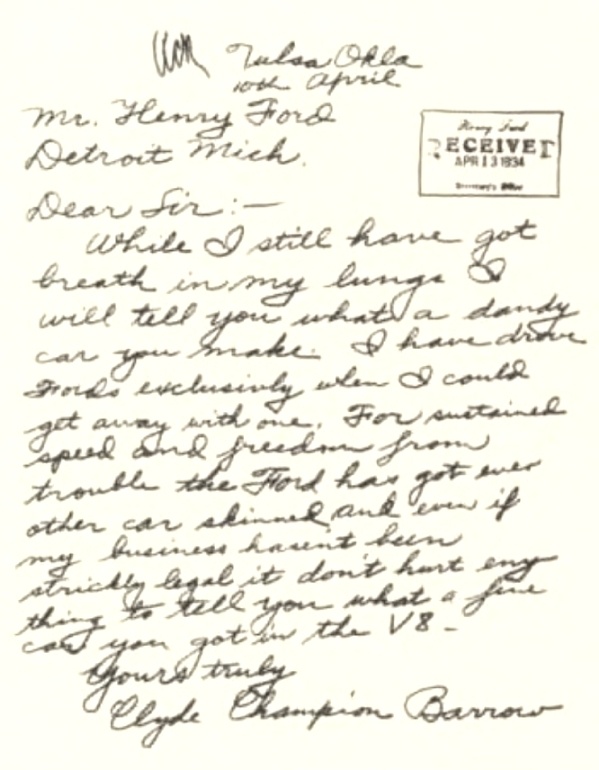 Tulsa Okla
10th April
Mr. Henry Ford
Detroit Mich.
Henry Ford
RECEIVED
APR 13 1934
Secretary's Office
Dear Sir:—
While I still have got
breath in my lungs I
will tell you what a dandy
car you make. I have drove
Fords exclusivly when I could
get away with one. For sustained
speed and freedom from
trouble the Ford has got ever
other car skinned, and even if
my business hasen't been
strickly legal it don't hurt eny
thing to tell you what a fine
car you got in the V8 -
Yours truly
Clyde Champion Barrow